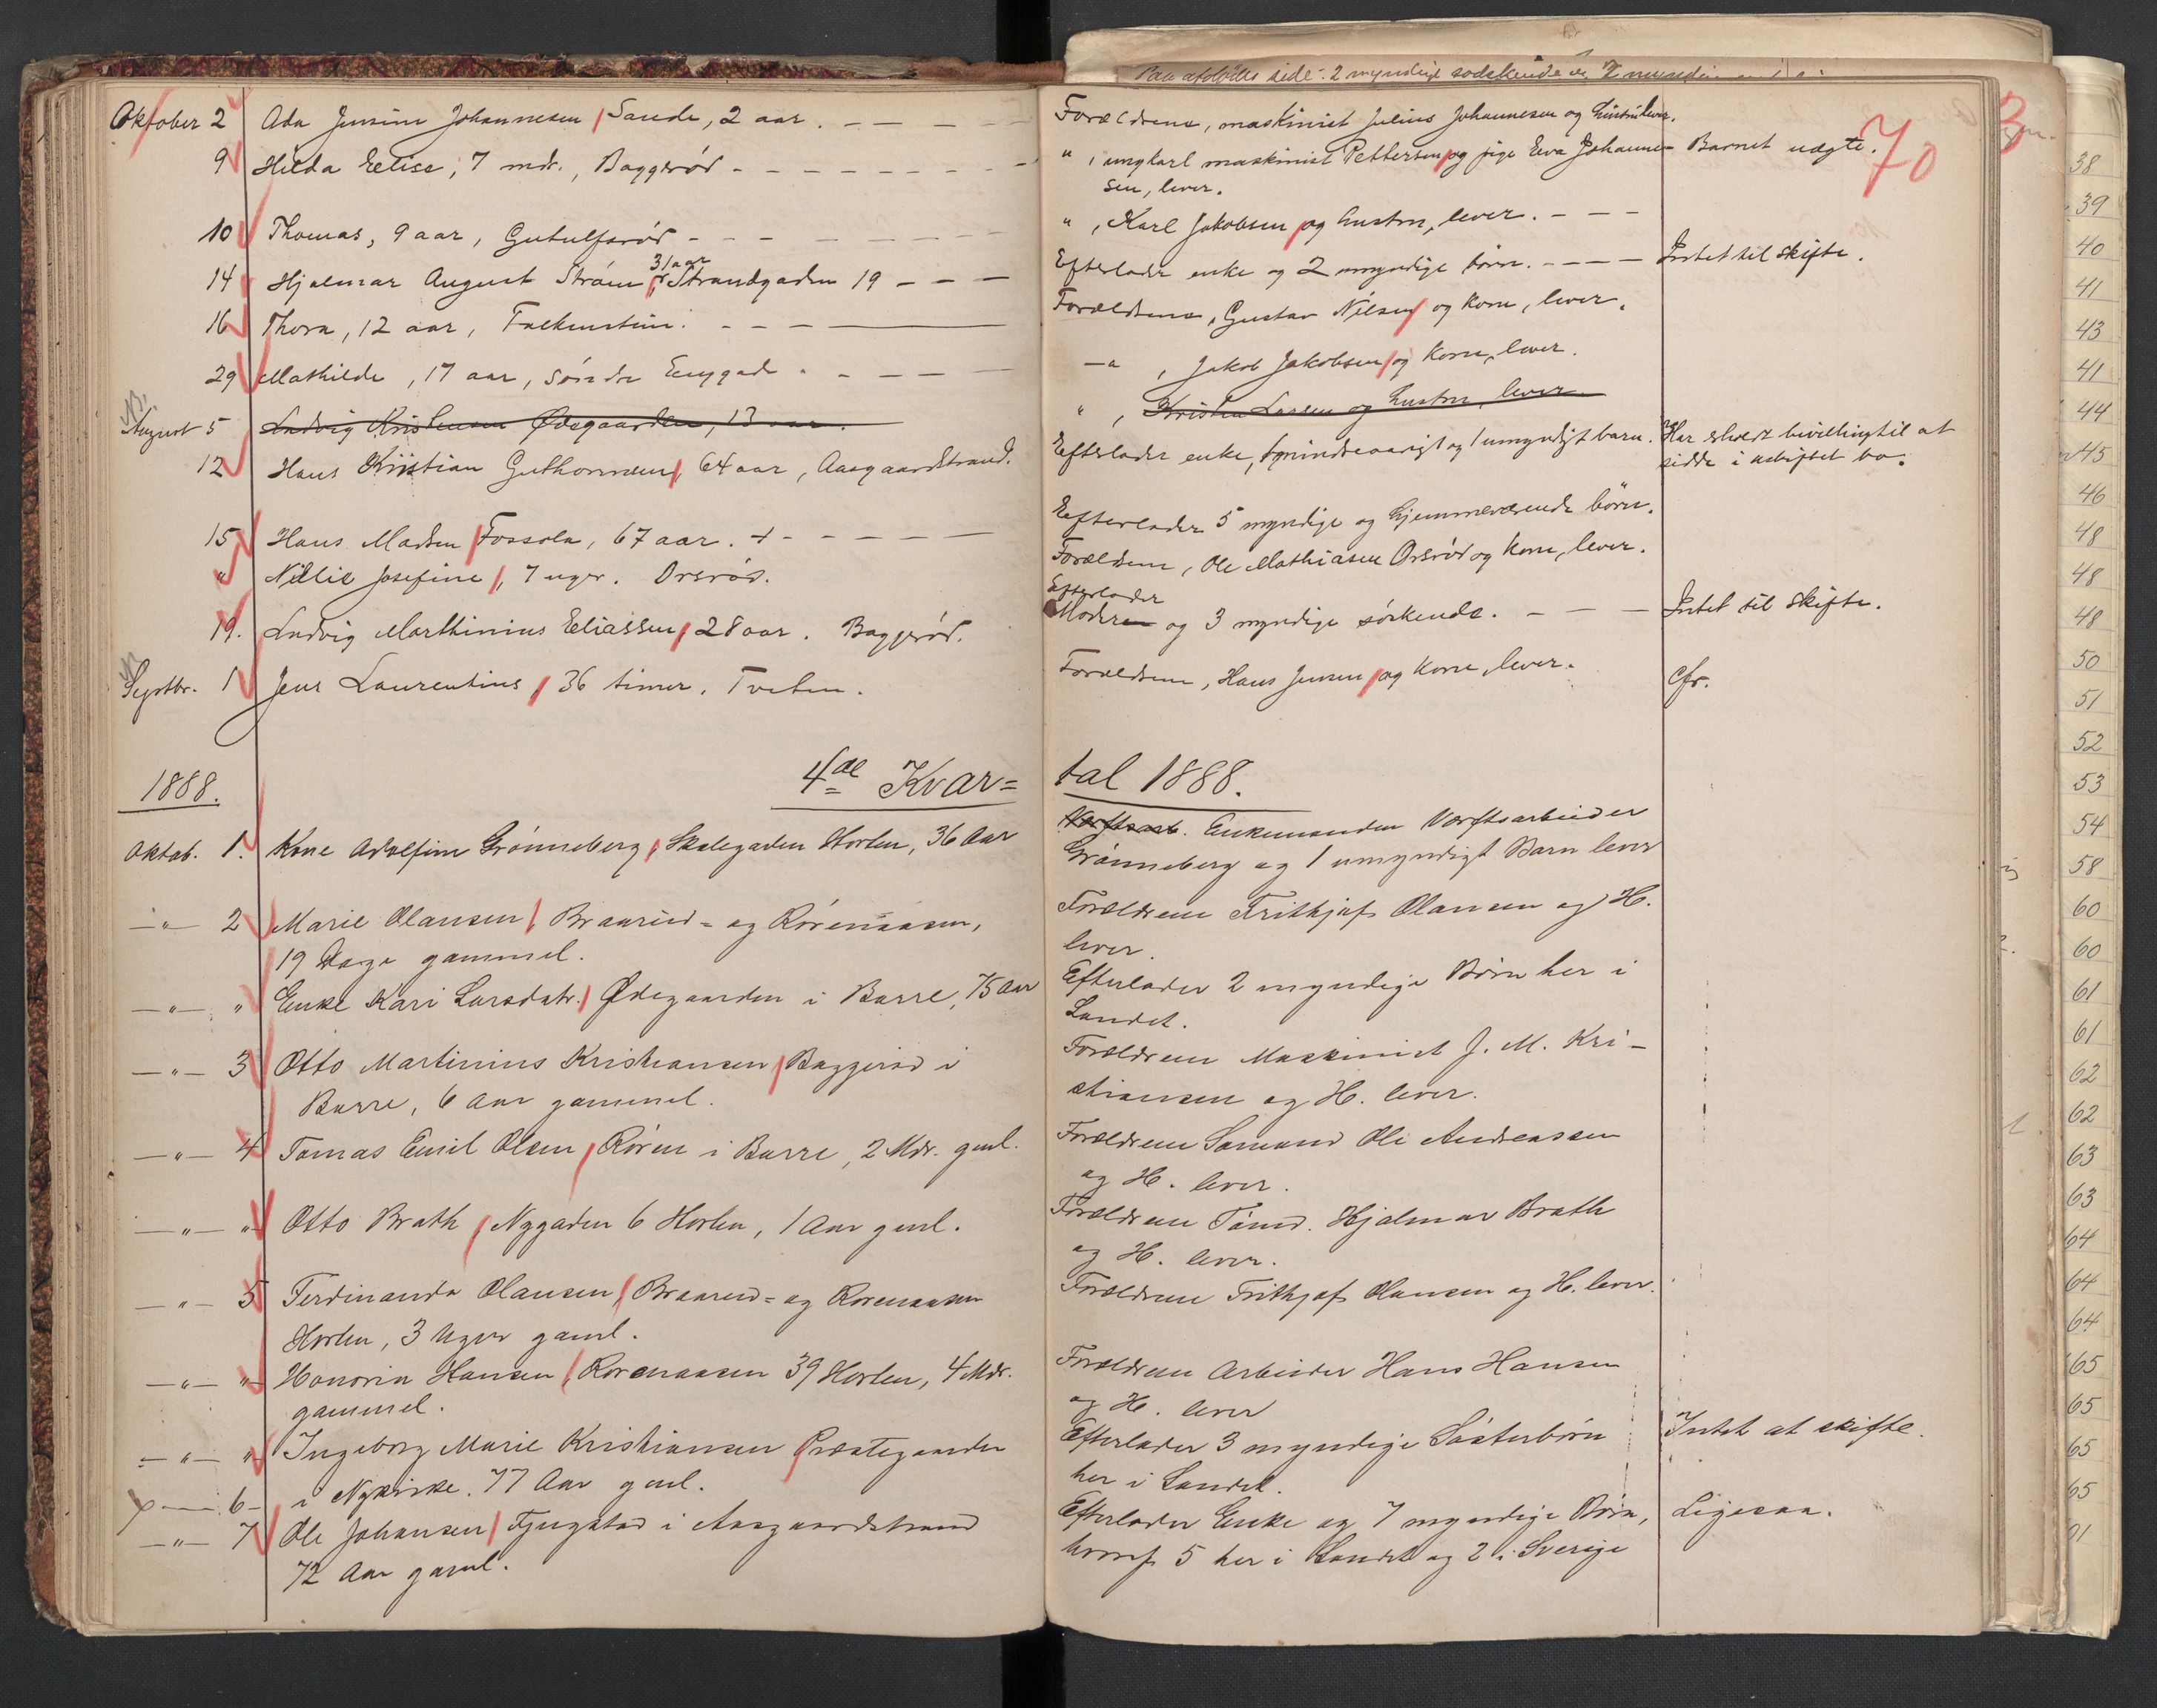 70
Oktober 2 Ada Jensine Johannesen, Sande, 2 aar. Forældrene, maskinist Julius Johannesen og hustru lever.
9 Hilda Elise, 7 mdr., Baggerød " , ungkarl maskinist Pettersen og pige Eva Johanne- Barnet uægte.
sen, lever.
10 Thomas, 9 aar, Gutulfsrød " , Karl Jakobsen og hustru, lever.
31 aar
14 Hjalmar August Strøm, Strandgaden 19 Efterlader enke og 2 umyndige børn. Intet til skifte.
16 Thora, 12 aar, Falkensten. Forældrene, Gustav Nilsen og kone, lever.
29 Mathilde, 17 aar, Søndre Enggade — " , Jakob Jakobsen og kone, lever.
NB.
August 5 Ludvig Kristensen Ødegaarden, 13 aar. " , Kristen Larsen og hustru, lever
12 Hans Kristian Guthormsen, 64 aar, Aasgaardstrand. Efterlader enke, 1 mindreaarigt og 1 umyndigt barn. Har erholdt bevilling til at
sidde i uskiftet bo.
15 Hans Madsen Fossola, 67 aar. + Efterlader 5 myndige og hjemmeværende børn.
" Nillie Josefine, 7 uger. Orerød. Forældrene, Ole Mathiasen Orerød og kone, lever.
Efterlader
19. Ludvig Marthinius Eliassen, 28 aar. Baggerød. Moderen og 3 myndige søskende. Intet til skifte.
Septbr. 1 Jens Laurentius, 36 timer. Tveten. Forældrene, Hans Jensen og kone, lever. Cfr.
1888. 4de Kvar= tal 1888.
Oktob. 1. Kone Adolfine Grønneberg, Skolegaden Horten, 36 Aar Værftsarb. Enkemanden Værftsarbeider
Grønneberg og 1 umyndigt Barn lever
—"— 2 Marie Olausen, Braarud- og Rørenaasen, Forældrene Frithjof Olausen og H.
19 Dage gammel. lever.
—"— " Enke Kari Larsdatr. Ødegaarden i Borre, 75 Aar Efterlader 2 myndige Børn her i
Landet.
—"— 3 Otto Martinius Kristiansen, Baggerød i Forældrene Maskinist J. M. Kri-
Borre, 6 Aar gammel. stiansen og H. lever.
—"— 4 Tomas Emil Olsen, Røren i Borre, 2 Mdr. gml. Forældrene Sømand Ole Andreassen
og H. lever.
—"— " Otto Brath, Nygaden 6 Horten, 1 Aar gml. Forældrene Tømd. Hjalmar Brath
og H. lever.
—"— 5 Ferdinanda Olausen, Braarud- og Rørenaasen Forældrene Frithjof Olausen og H. lever.
Horten, 3 Uger gaml.
—"— " Honoria Hansen, Rørenaasen 39 Horten, 4 Mdr. Forældrene Arbeider Hans Hansen
gammel. og H. lever
—"— " Ingeborg Marie Kristiansen Præstegaarden Efterlader 3 myndige Søsterbørn Intet at skifte.
6 i Nykirke. 77 Aar gml. her i Landet.
—"— 7 Ole Johansen, Fjugstad i Aasgaardstrand Efterlader Enke og 7 myndige Børn, Ligesaa.
72 Aar gaml. hvoraf 5 her i Landet og 2 i Sverige
38
39
40
41
43
41
44
45
46
48
48
48
50
51
52
53
54
58
60
60
61
61
62
62
63
63
64
64
64
65
65
65
65
91